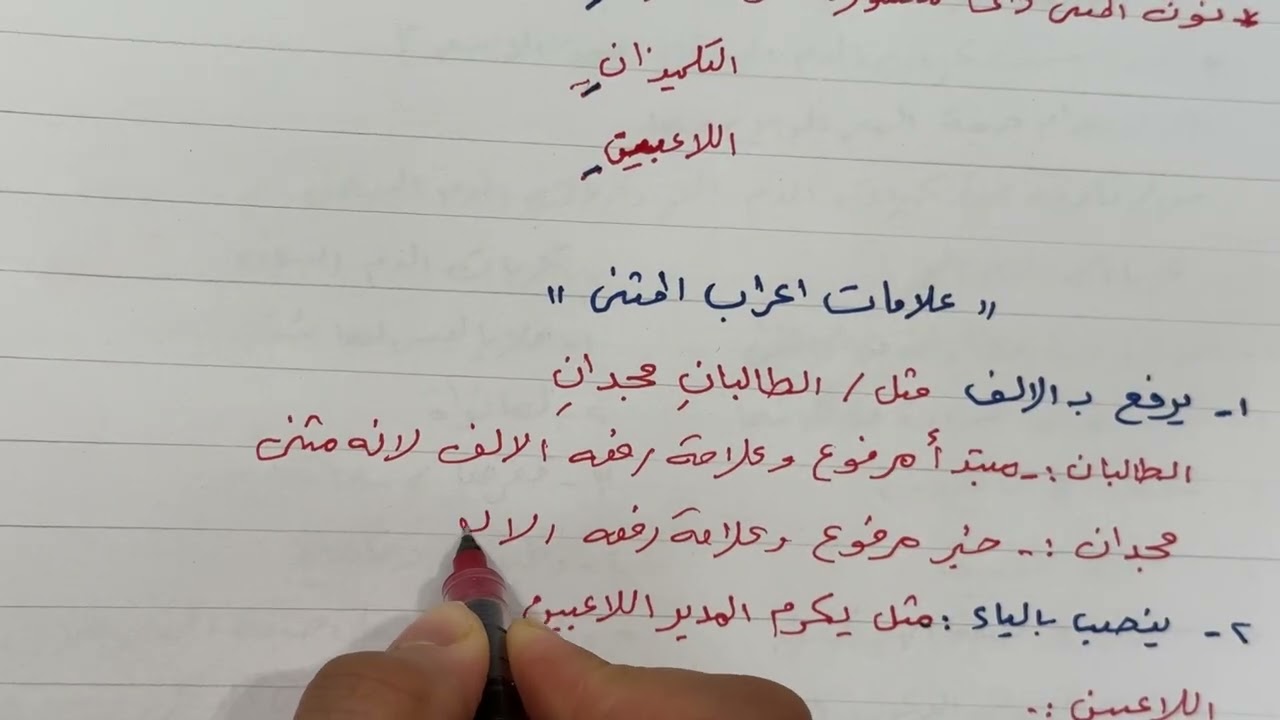 * نون المثنى دائما
التلميذانِ
اللاعبينِ
" علامات اعراب المثنى "
١- يرفع بـ الالف مثل / الطالبانِ مجدانِ
الطالبان :- مبتدأ مرفوع وعلامة رفعه الالف لانه مثنى
مجدان :- خبر مرفوع وعلامة رفعه الالف
٢- ينصب بالياء : مثل يكرم المدير اللاعبين
اللاعبين :-